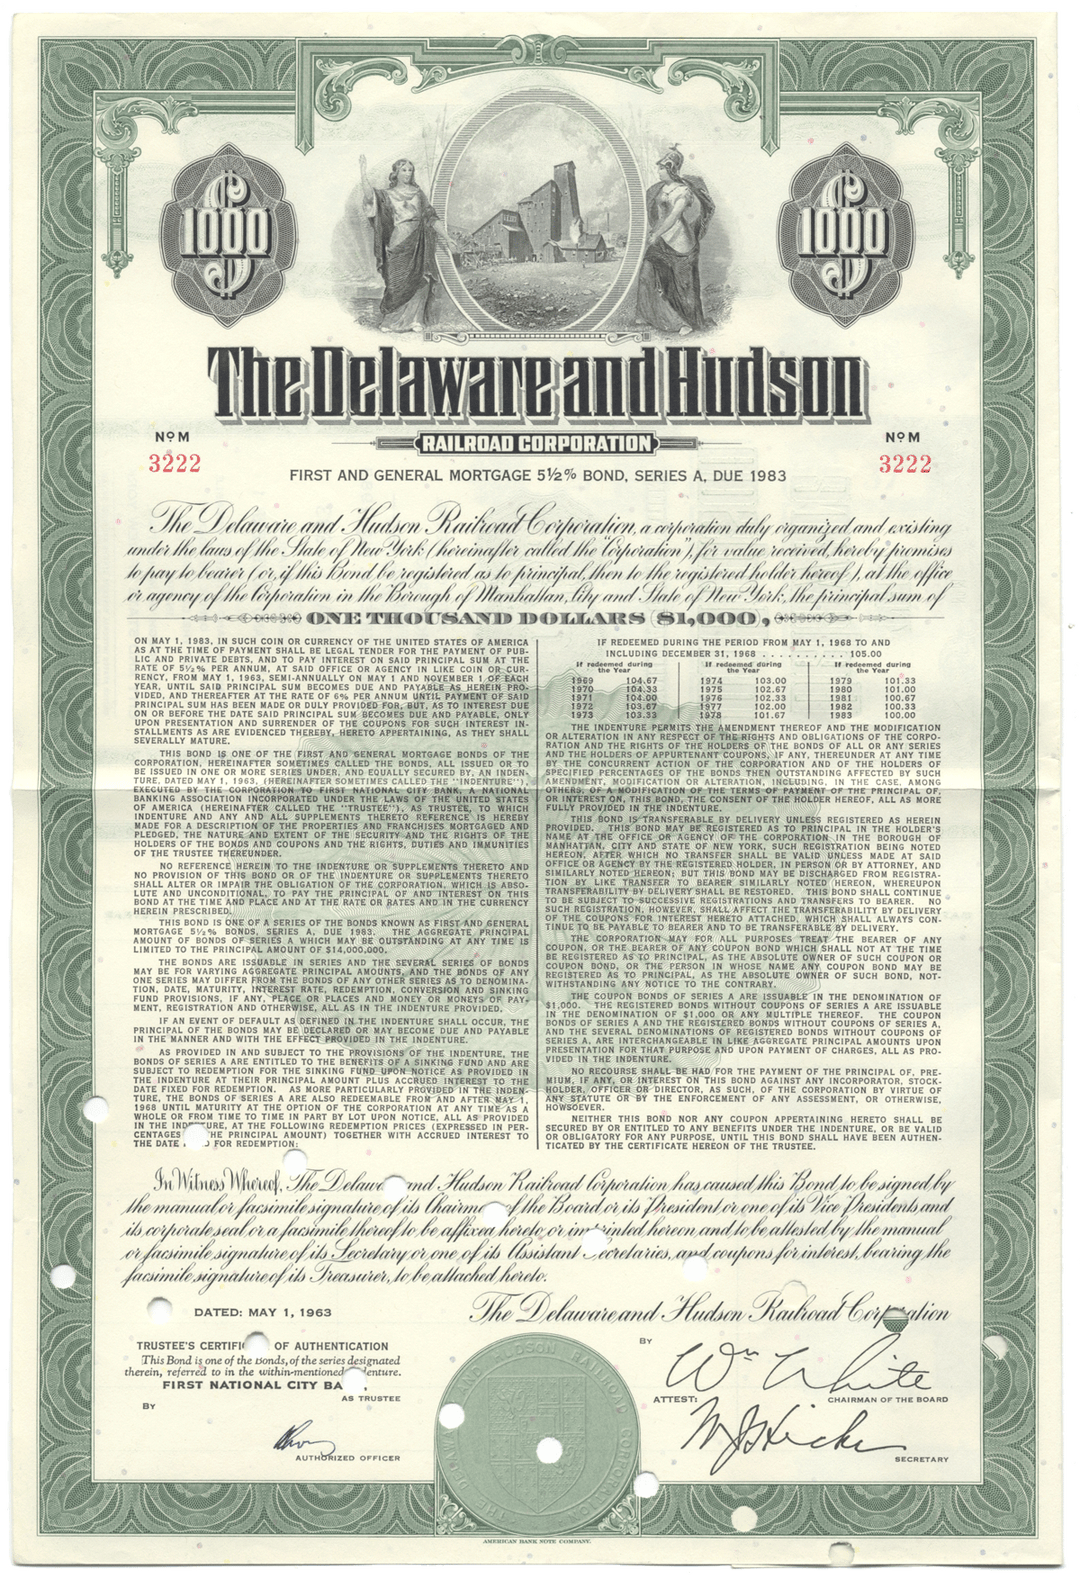 $1000
$1000
The Delaware and Hudson
RAILROAD CORPORATION
No M
3222
No M
3222
FIRST AND GENERAL MORTGAGE 5½% BOND, SERIES A, DUE 1983
The Delaware and Hudson Railroad Corporation, a corporation duly organized and existing
under the laws of the State of New York (hereinafter called the "Corporation"), for value received, hereby promises
to pay to bearer (or, if this Bond be registered as to principal, then to the registered holder hereof), at the office
or agency of the Corporation in the Borough of Manhattan, City and State of New York, the principal sum of
ONE THOUSAND DOLLARS ($1,000),
ON MAY 1, 1983, IN SUCH COIN OR CURRENCY OF THE UNITED STATES OF AMERICA
AS AT THE TIME OF PAYMENT SHALL BE LEGAL TENDER FOR THE PAYMENT OF PUB-
LIC AND PRIVATE DEBTS, AND TO PAY INTEREST ON SAID PRINCIPAL SUM AT THE
RATE OF 5½% PER ANNUM, AT SAID OFFICE OR AGENCY IN LIKE COIN OR CUR-
RENCY, FROM MAY 1, 1963, SEMI-ANNUALLY ON MAY 1 AND NOVEMBER 1 OF EACH
YEAR, UNTIL SAID PRINCIPAL SUM BECOMES DUE AND PAYABLE AS HEREIN PRO-
VIDED, AND THEREAFTER AT THE RATE OF 6% PER ANNUM UNTIL PAYMENT OF SAID
PRINCIPAL SUM HAS BEEN MADE OR DULY PROVIDED FOR, BUT, AS TO INTEREST DUE
ON OR BEFORE THE DATE SAID PRINCIPAL SUM BECOMES DUE AND PAYABLE, ONLY
UPON PRESENTATION AND SURRENDER OF THE COUPONS FOR SUCH INTEREST IN-
STALLMENTS AS ARE EVIDENCED THEREBY, HERETO APPERTAINING, AS THEY SHALL
SEVERALLY MATURE.
THIS BOND IS ONE OF THE FIRST AND GENERAL MORTGAGE BONDS OF THE
CORPORATION, HEREINAFTER SOMETIMES CALLED THE BONDS, ALL ISSUED OR TO
BE ISSUED IN ONE OR MORE SERIES UNDER, AND EQUALLY SECURED BY, AN INDEN-
TURE, DATED MAY 1, 1963, (HEREINAFTER SOMETIMES CALLED THE "INDENTURE"),
EXECUTED BY THE CORPORATION TO FIRST NATIONAL CITY BANK, A NATIONAL
BANKING ASSOCIATION INCORPORATED UNDER THE LAWS OF THE UNITED STATES
OF AMERICA (HEREAFTER CALLED THE "TRUSTEE"), AS TRUSTEE, TO WHICH
INDENTURE AND ANY AND ALL SUPPLEMENTS THERETO REFERENCE IS HEREBY
MADE FOR A DESCRIPTION OF THE PROPERTIES AND FRANCHISES MORTGAGED AND
PLEDGED, THE NATURE AND EXTENT OF THE SECURITY AND THE RIGHTS OF THE
HOLDERS OF THE BONDS AND COUPONS AND THE RIGHTS, DUTIES AND IMMUNITIES
OF THE TRUSTEE THEREUNDER.
NO REFERENCE HEREIN TO THE INDENTURE OR SUPPLEMENTS THERETO AND
NO PROVISION OF THIS BOND OR OF THE INDENTURE OR SUPPLEMENTS THERETO
SHALL ALTER OR IMPAIR THE OBLIGATION OF THE CORPORATION, WHICH IS ABSO-
LUTE AND UNCONDITIONAL, TO PAY THE PRINCIPAL OF AND INTEREST ON THIS
BOND AT THE TIME AND PLACE AND AT THE RATE OR RATES AND IN THE CURRENCY
HEREIN PRESCRIBED.
THIS BOND IS ONE OF A SERIES OF THE BONDS KNOWN AS FIRST AND GENERAL
MORTGAGE 5½% BONDS, SERIES A, DUE 1983. THE AGGREGATE PRINCIPAL
AMOUNT OF BONDS OF SERIES A WHICH MAY BE OUTSTANDING AT ANY TIME IS
LIMITED TO THE PRINCIPAL AMOUNT OF $14,000,000.
THE BONDS ARE ISSUABLE IN SERIES AND THE SEVERAL SERIES OF BONDS
MAY BE FOR VARYING AGGREGATE PRINCIPAL AMOUNTS, AND THE BONDS OF ANY
ONE SERIES MAY DIFFER FROM THE BONDS OF ANY OTHER SERIES AS TO DENOMINA-
TION, DATE, MATURITY, INTEREST RATE, REDEMPTION, CONVERSION AND SINKING
FUND PROVISIONS, IF ANY, PLACE OR PLACES AND MONEY OR MONEYS OF PAY-
MENT, REGISTRATION AND OTHERWISE, ALL AS IN THE INDENTURE PROVIDED.
IF AN EVENT OF DEFAULT AS DEFINED IN THE INDENTURE SHALL OCCUR, THE
PRINCIPAL OF THE BONDS MAY BE DECLARED OR MAY BECOME DUE AND PAYABLE
IN THE MANNER AND WITH THE EFFECT PROVIDED IN THE INDENTURE.
AS PROVIDED IN AND SUBJECT TO THE PROVISIONS OF THE INDENTURE, THE
BONDS OF SERIES A ARE ENTITLED TO THE BENEFITS OF A SINKING FUND AND ARE
SUBJECT TO REDEMPTION FOR THE SINKING FUND UPON NOTICE AS PROVIDED IN
THE INDENTURE AT THEIR PRINCIPAL AMOUNT PLUS ACCRUED INTEREST TO THE
DATE FIXED FOR REDEMPTION. AS MORE PARTICULARLY PROVIDED IN THE INDEN-
TURE, THE BONDS OF SERIES A ARE ALSO REDEEMABLE FROM AND AFTER MAY 1,
1968 UNTIL MATURITY AT THE OPTION OF THE CORPORATION AT ANY TIME AS A
WHOLE OR FROM TIME TO TIME IN PART BY LOT UPON NOTICE, ALL AS PROVIDED
IN THE INDENTURE, AT THE FOLLOWING REDEMPTION PRICES (EXPRESSED IN PER-
CENTAGES THE PRINCIPAL AMOUNT) TOGETHER WITH ACCRUED INTEREST TO
THE DATE FOR REDEMPTION:
IF REDEEMED DURING THE PERIOD FROM MAY 1, 1968 TO AND
INCLUDING DECEMBER 31, 1968 . . . . . . . . . . 105.00
If redeemed during the Year If redeemed during the Year If redeemed during the Year
1969 104.67 1974 103.00 1979 101.33
1970 104.33 1975 102.67 1980 101.00
1971 104.00 1976 102.33 1981 100.67
1972 103.67 1977 102.00 1982 100.33
1973 103.33 1978 101.67 1983 100.00
THE INDENTURE PERMITS THE AMENDMENT THEREOF AND THE MODIFICATION
OR ALTERATION IN ANY RESPECT OF THE RIGHTS AND OBLIGATIONS OF THE CORPO-
RATION AND THE RIGHTS OF THE HOLDERS OF THE BONDS OF ALL OR ANY SERIES
AND THE HOLDERS OF APPURTENANT COUPONS, IF ANY, THEREUNDER AT ANY TIME
BY THE CONCURRENT ACTION OF THE CORPORATION AND OF THE HOLDERS OF
SPECIFIED PERCENTAGES OF THE BONDS THEN OUTSTANDING AFFECTED BY SUCH
AMENDMENT, MODIFICATION OR ALTERATION, INCLUDING, IN THE CASE, AMONG
OTHERS, OF A MODIFICATION OF THE TERMS OF PAYMENT OF THE PRINCIPAL OF,
OR INTEREST ON, THIS BOND, THE CONSENT OF THE HOLDER HEREOF, ALL AS MORE
FULLY PROVIDED IN THE INDENTURE.
THIS BOND IS TRANSFERABLE BY DELIVERY UNLESS REGISTERED AS HEREIN
PROVIDED. THIS BOND MAY BE REGISTERED AS TO PRINCIPAL IN THE HOLDER'S
NAME AT THE OFFICE OR AGENCY OF THE CORPORATION IN THE BOROUGH OF
MANHATTAN, CITY AND STATE OF NEW YORK, SUCH REGISTRATION BEING NOTED
HEREON, AFTER WHICH NO TRANSFER SHALL BE VALID UNLESS MADE AT SAID
OFFICE OR AGENCY BY THE REGISTERED HOLDER, IN PERSON OR BY ATTORNEY, AND
SIMILARLY NOTED HEREON; BUT THIS BOND MAY BE DISCHARGED FROM REGISTRA-
TION BY LIKE TRANSFER TO BEARER SIMILARLY NOTED HEREON, WHEREUPON
TRANSFERABILITY BY DELIVERY SHALL BE RESTORED. THIS BOND SHALL CONTINUE
TO BE SUBJECT TO SUCCESSIVE REGISTRATIONS AND TRANSFERS TO BEARER. NO
SUCH REGISTRATION, HOWEVER, SHALL AFFECT THE TRANSFERABILITY BY DELIVERY
OF THE COUPONS FOR INTEREST HERETO ATTACHED, WHICH SHALL ALWAYS CON-
TINUE TO BE PAYABLE TO BEARER AND TO BE TRANSFERABLE BY DELIVERY.
THE CORPORATION MAY FOR ALL PURPOSES TREAT THE BEARER OF ANY
COUPON, OR THE BEARER OF ANY COUPON BOND WHICH SHALL NOT AT THE TIME
BE REGISTERED AS TO PRINCIPAL, AS THE ABSOLUTE OWNER OF SUCH COUPON OR
COUPON BOND, OR THE PERSON IN WHOSE NAME ANY COUPON BOND MAY BE
REGISTERED AS TO PRINCIPAL, AS THE ABSOLUTE OWNER OF SUCH BOND, NOT-
WITHSTANDING ANY NOTICE TO THE CONTRARY.
THE COUPON BONDS OF SERIES A ARE ISSUABLE IN THE DENOMINATION OF
$1,000. THE REGISTERED BONDS WITHOUT COUPONS OF SERIES A ARE ISSUABLE
IN THE DENOMINATION OF $1,000 OR ANY MULTIPLE THEREOF. THE COUPON
BONDS OF SERIES A AND THE REGISTERED BONDS WITHOUT COUPONS OF SERIES A,
AND THE SEVERAL DENOMINATIONS OF REGISTERED BONDS WITHOUT COUPONS OF
SERIES A, ARE INTERCHANGEABLE IN LIKE AGGREGATE PRINCIPAL AMOUNTS UPON
PRESENTATION FOR THAT PURPOSE AND UPON PAYMENT OF CHARGES, ALL AS PRO-
VIDED IN THE INDENTURE.
NO RECOURSE SHALL BE HAD FOR THE PAYMENT OF THE PRINCIPAL OF, PRE-
MIUM, IF ANY, OR INTEREST ON THIS BOND AGAINST ANY INCORPORATOR, STOCK-
HOLDER, OFFICER OR DIRECTOR, AS SUCH, OF THE CORPORATION BY VIRTUE OF
ANY STATUTE OR BY THE ENFORCEMENT OF ANY ASSESSMENT, OR OTHERWISE,
HOWSOEVER.
NEITHER THIS BOND NOR ANY COUPON APPERTAINING HERETO SHALL BE
SECURED BY OR ENTITLED TO ANY BENEFITS UNDER THE INDENTURE, OR BE VALID
OR OBLIGATORY FOR ANY PURPOSE, UNTIL THIS BOND SHALL HAVE BEEN AUTHEN-
TICATED BY THE CERTIFICATE HEREON OF THE TRUSTEE.
In Witness Whereof, The Delaware and Hudson Railroad Corporation has caused this Bond to be signed by
the manual or facsimile signature of its Chairman of the Board or its President or one of its Vice Presidents and
its corporate seal or a facsimile thereof to be affixed hereto or imprinted hereon and to be attested by the manual
or facsimile signature of its Secretary or one of its Assistant Secretaries, and coupons for interest, bearing the
facsimile signature of its Treasurer, to be attached hereto.
DATED: MAY 1, 1963
The Delaware and Hudson Railroad Corporation
TRUSTEE'S CERTIFIC OF AUTHENTICATION
This Bond is one of the Bonds, of the series designated
therein, referred to in the within-mentioned Indenture.
FIRST NATIONAL CITY BANK,
AS TRUSTEE
BY
AUTHORIZED OFFICER
BY
Wm White
CHAIRMAN OF THE BOARD
ATTEST:
SECRETARY
THE DELAWARE AND HUDSON RAILROAD CORPORATION
AMERICAN BANK NOTE COMPANY.